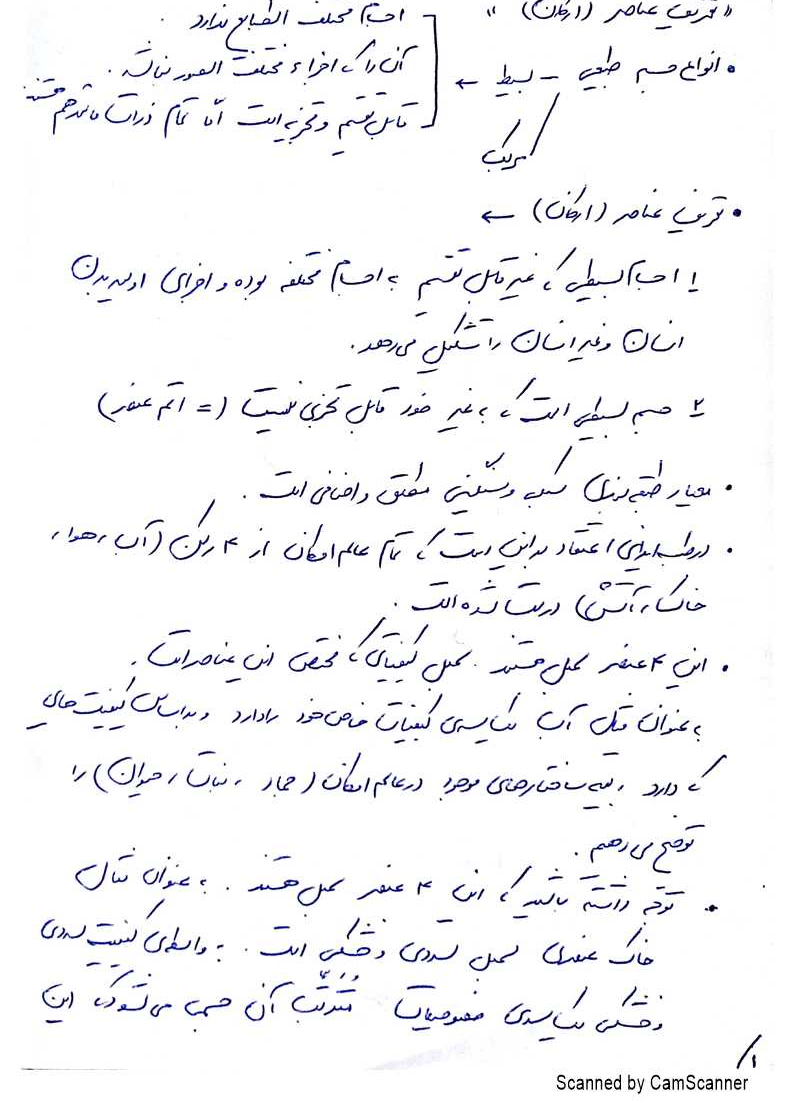 "تعریف عناصر (ارکان)"
• انواع جسم طبیعی – بسیط ←
مرکب
اجسام مختلف الطبایع ندارد.
آن را که اجزاء مختلفت الصور نباشد.
قابل تقسیم و تجزیه است امّا تمام ذرات مانند هم هستند
• تعریف عناصر (ارکان) ←
۱ اجسام بسیطی که غیر قابل تقسیم به اجسام مختلفه بوده و اجزای اولیه بدن
انسان و غیر انسان را تشکیل می‌دهد.
۲ جسم بسیطی است که به غیر خود قابل تجزی نیست (= اتم عنصر)
• معیار طبقه‌بندی سبکی و سنگینی مطلق و اضافی است.
• در طب ایرانی اعتقاد بر این است که تمام عالم امکان از ۴ رکن (آب، هوا،
خاک، آتش) درست شده است.
• این ۴ عنصر سمبل هستند. سمبل کیفیاتی که مختص این عناصر است.
به عنوان مثال آب یکسری کیفیات خاص خود را دارد و براساس کیفیت‌های
که دارد، بقیه ساختارهای موجود در عالم امکان (جماد، نبات، حیوان) را
توضیح می‌دهیم.
• توجه داشته باشید که این ۴ عنصر سمبل هستند. به عنوان مثال
خاک عنصری سمبل سردی و خشکی است. به واسطه‌ی کیفیت سردی
و خشکی یکسری خصوصیات مترتب آن جسم می‌شود که این
۱/
Scanned by CamScanner